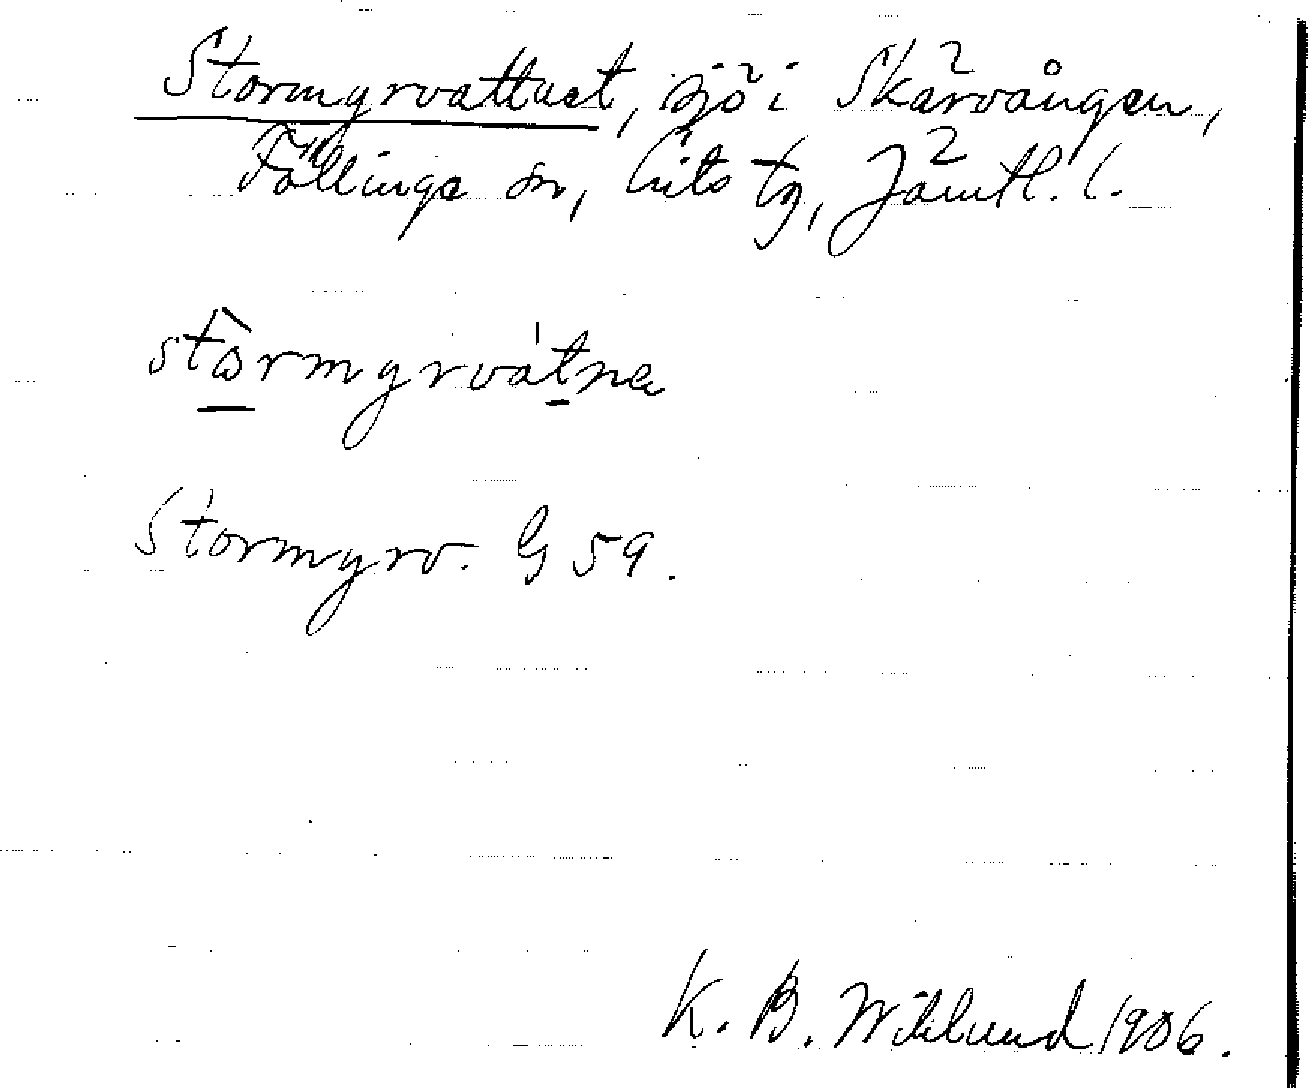 Stormyrvattnet, sjö i Skärvången,
Föllinge sn, Lits tg, Jämtl. l.
stormyrvátnɐ
Stormyrv. G 59.
K. B. Wiklund 1906.